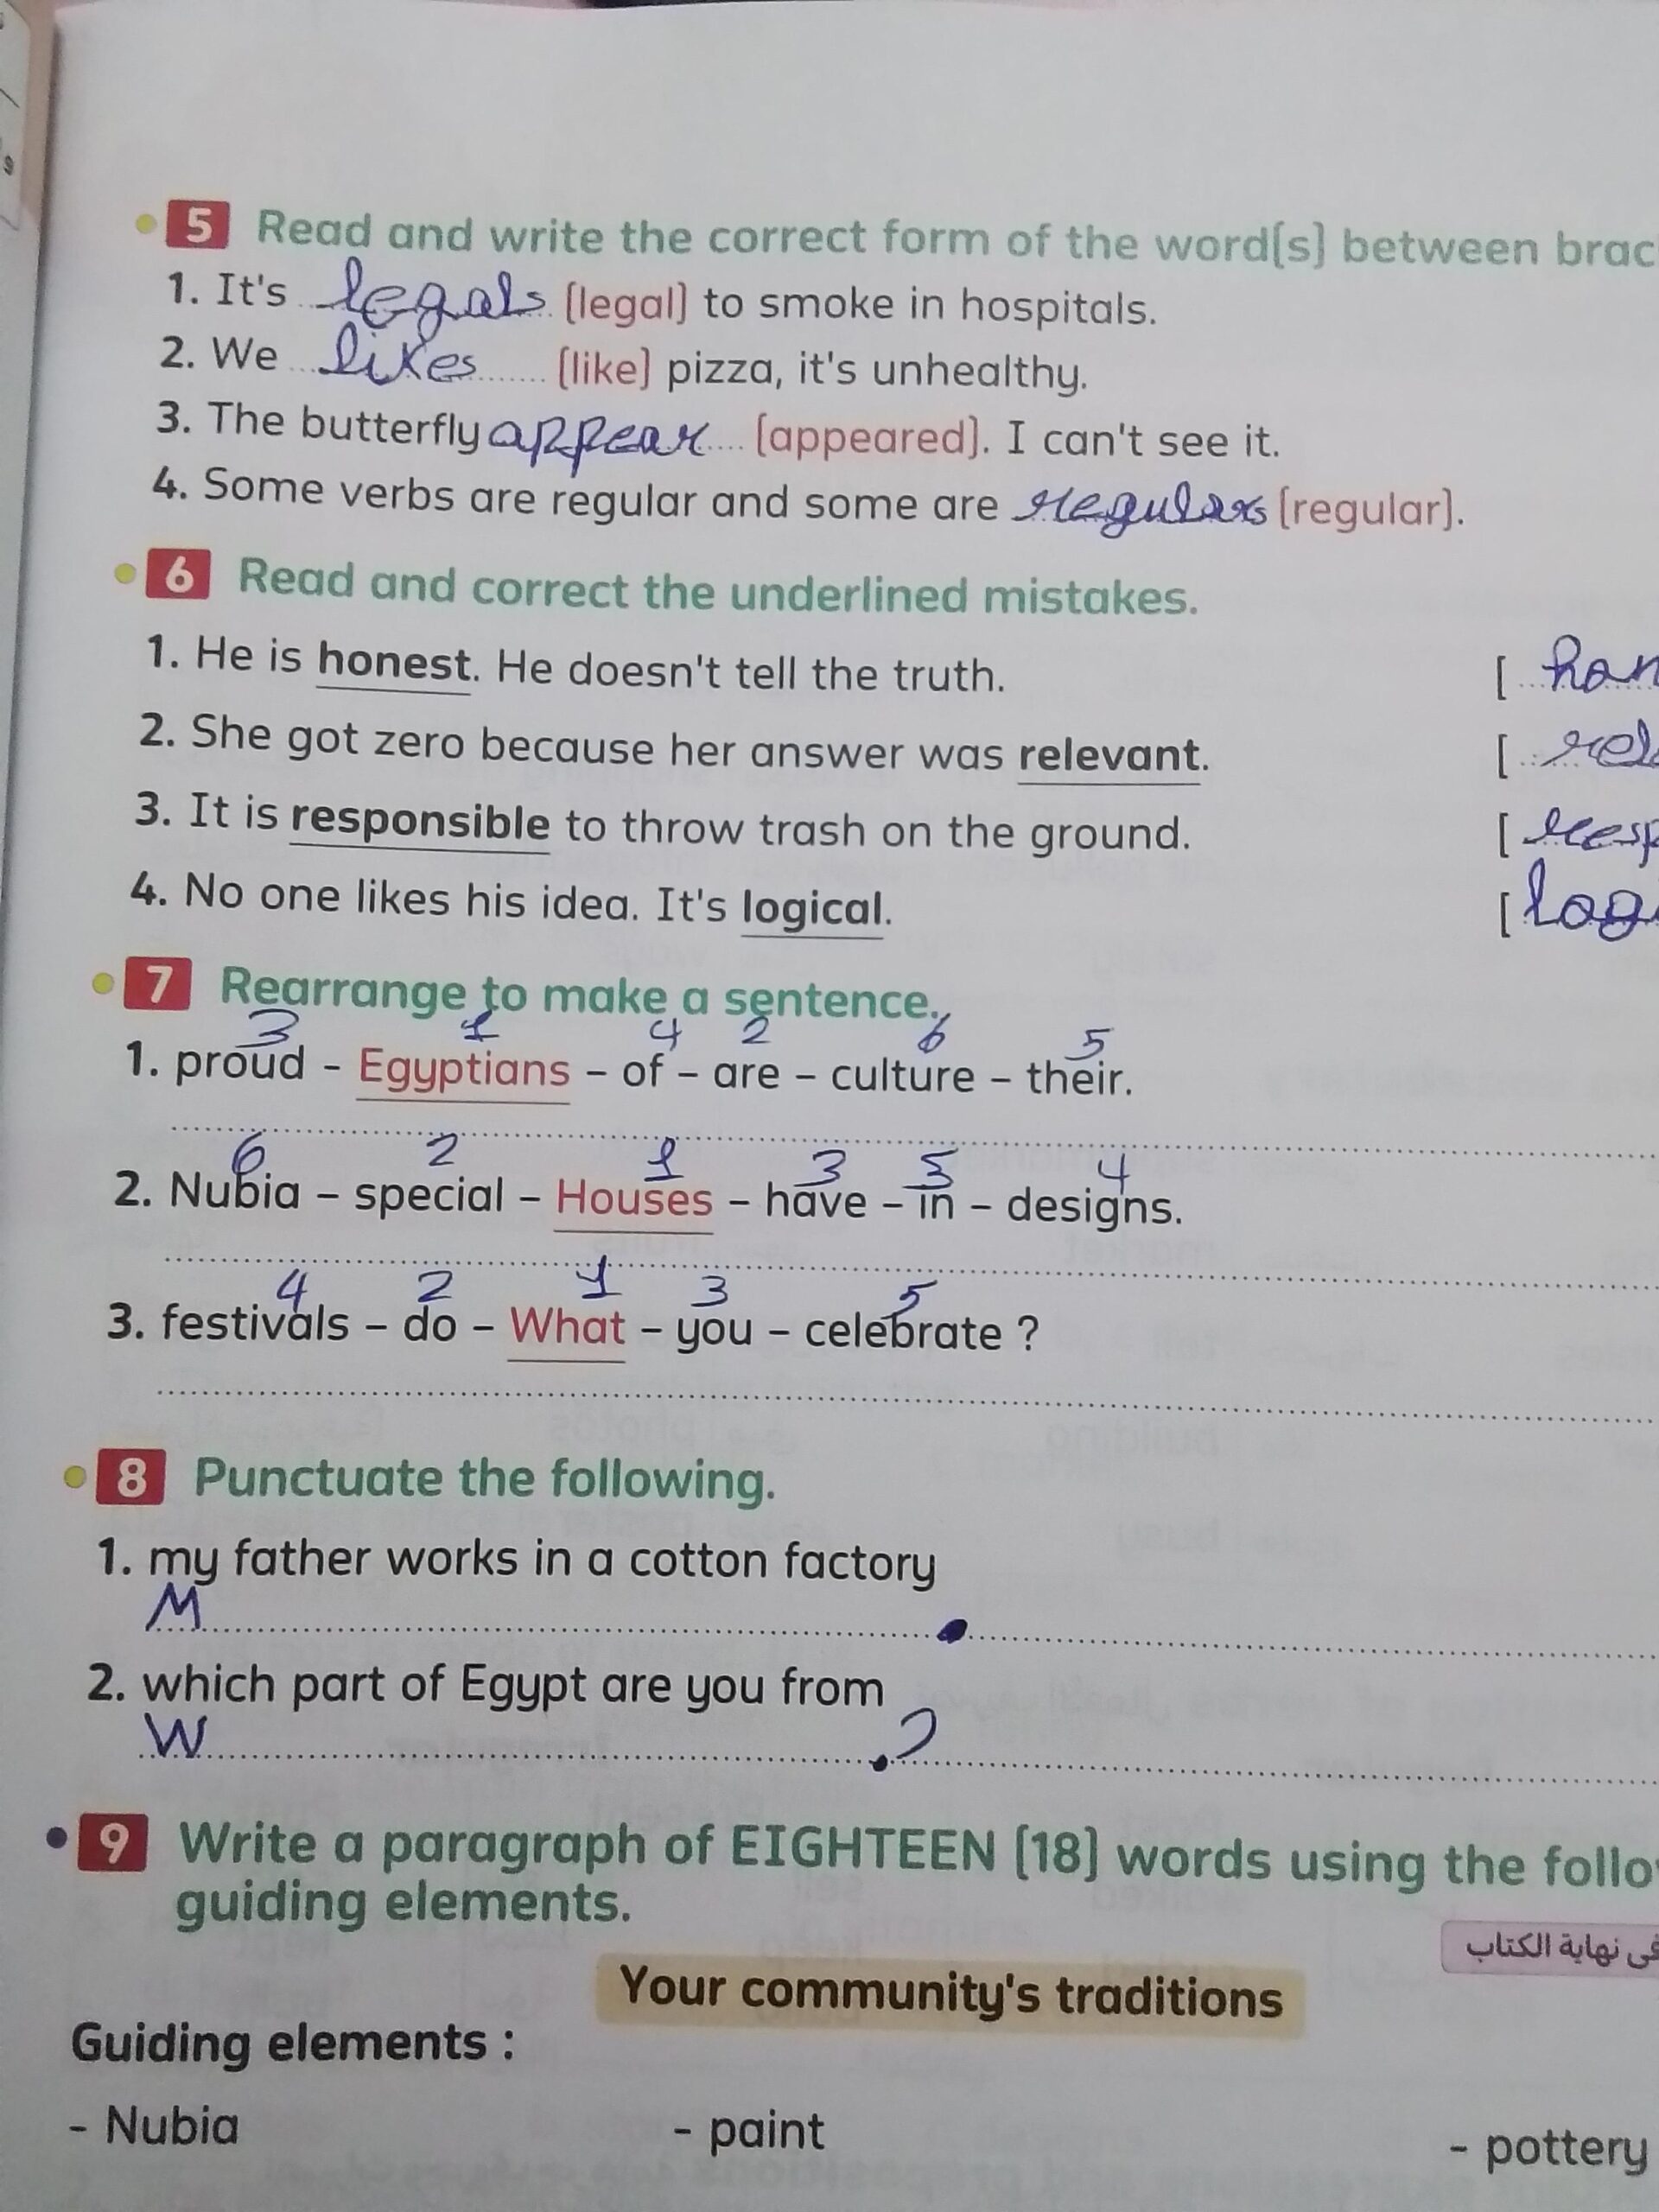 5 Read and write the correct form of the word(s) between brac
1. It's legals [legal] to smoke in hospitals.
2. We likes [like] pizza, it's unhealthy.
3. The butterfly appear [appeared]. I can't see it.
4. Some verbs are regular and some are regulars [regular].
6 Read and correct the underlined mistakes.
1. He is honest. He doesn't tell the truth. [ hon
2. She got zero because her answer was relevant. [ rel
3. It is responsible to throw trash on the ground. [ resp
4. No one likes his idea. It's logical. [ log
7 Rearrange to make a sentence.
3 1 4 2 6 5
1. proud – Egyptians – of – are – culture – their.
6 2 1 3 5 4
2. Nubia – special – Houses – have – in – designs.
4 2 1 3 5
3. festivals – do – What – you – celebrate ?
8 Punctuate the following.
1. my father works in a cotton factory
M .
2. which part of Egypt are you from
W ?
9 Write a paragraph of EIGHTEEN [18] words using the follo
guiding elements.
فى نهاية الكتاب
Your community's traditions
Guiding elements :
- Nubia - paint - pottery